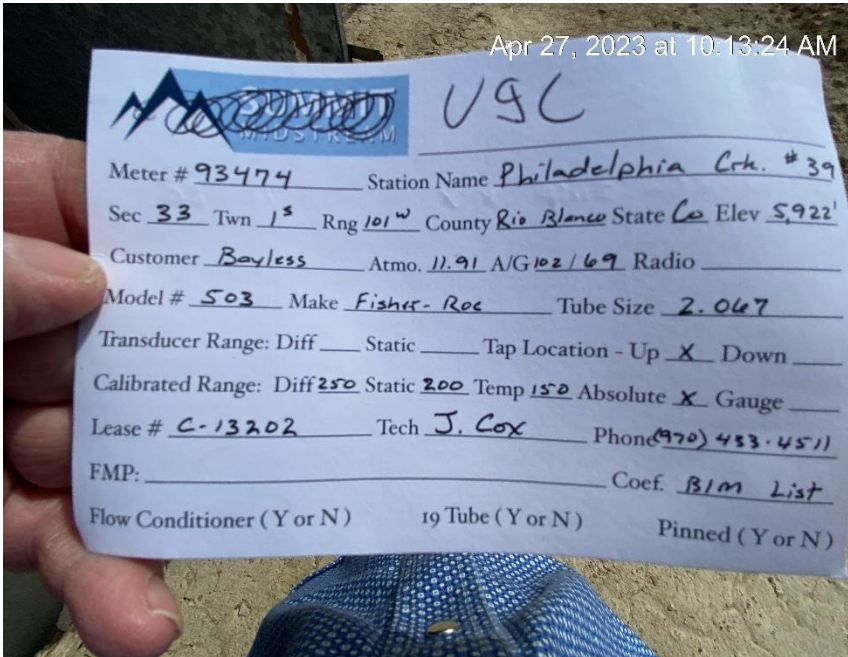 Apr 27, 2023 at 10:13:24 AM
SUMMIT
MIDSTREAM
UGC
Meter # 93474 Station Name Philadelphia Crk. #39
Sec 33 Twn 1S Rng 101W County Rio Blanco State Co Elev 5,922'
Customer Bayless Atmo. 11.91 A/G 102/69 Radio
Model # 503 Make Fisher-Roc Tube Size 2.067
Transducer Range: Diff Static Tap Location - Up X Down
Calibrated Range: Diff 250 Static 200 Temp 150 Absolute X Gauge
Lease # C-13202 Tech J. Cox Phone (970) 433-4511
FMP: Coef. B/M List
Flow Conditioner (Y or N) 19 Tube (Y or N) Pinned (Y or N)